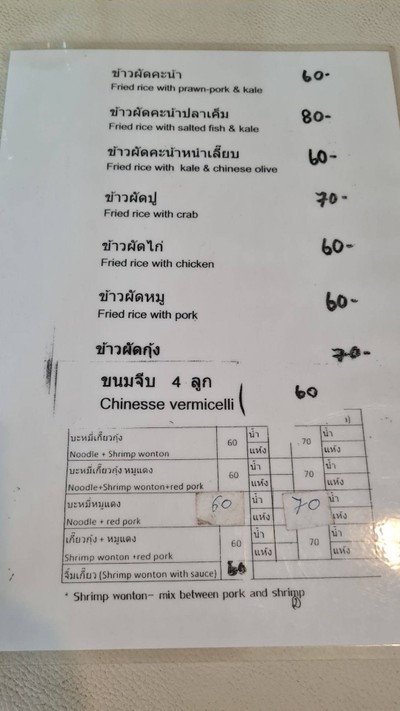 ข้าวผัดคะน้า 60-
Fried rice with prawn-pork & kale
ข้าวผัดคะน้าปลาเค็ม 80-
Fried rice with salted fish & kale
ข้าวผัดคะน้าหนำเลี๊ยบ 60-
Fried rice with kale & chinese olive
ข้าวผัดปู 70-
Fried rice with crab
ข้าวผัดไก่ 60-
Fried rice with chicken
ข้าวผัดหมู 60-
Fried rice with pork
ข้าวผัดกุ้ง 70-
ขนมจีบ 4 ลูก 60
Chinesse vermicelli
บะหมี่เกี๊ยวกุ้ง 60 น้ำ 70 น้ำ
Noodle + Shrimp wonton แห้ง แห้ง
บะหมี่เกี๊ยวกุ้ง หมูแดง 60 น้ำ 70 น้ำ
Noodle+Shrimp wonton+red pork แห้ง แห้ง
บะหมี่หมูแดง 60 น้ำ 70 น้ำ
Noodle + red pork แห้ง แห้ง
เกี๊ยวกุ้ง + หมูแดง 60 น้ำ 70 น้ำ
Shrimp wonton +red pork แห้ง แห้ง
จิ้มเกี๊ยว (Shrimp wonton with sauce) 60
* Shrimp wonton- mix between pork and shrimp